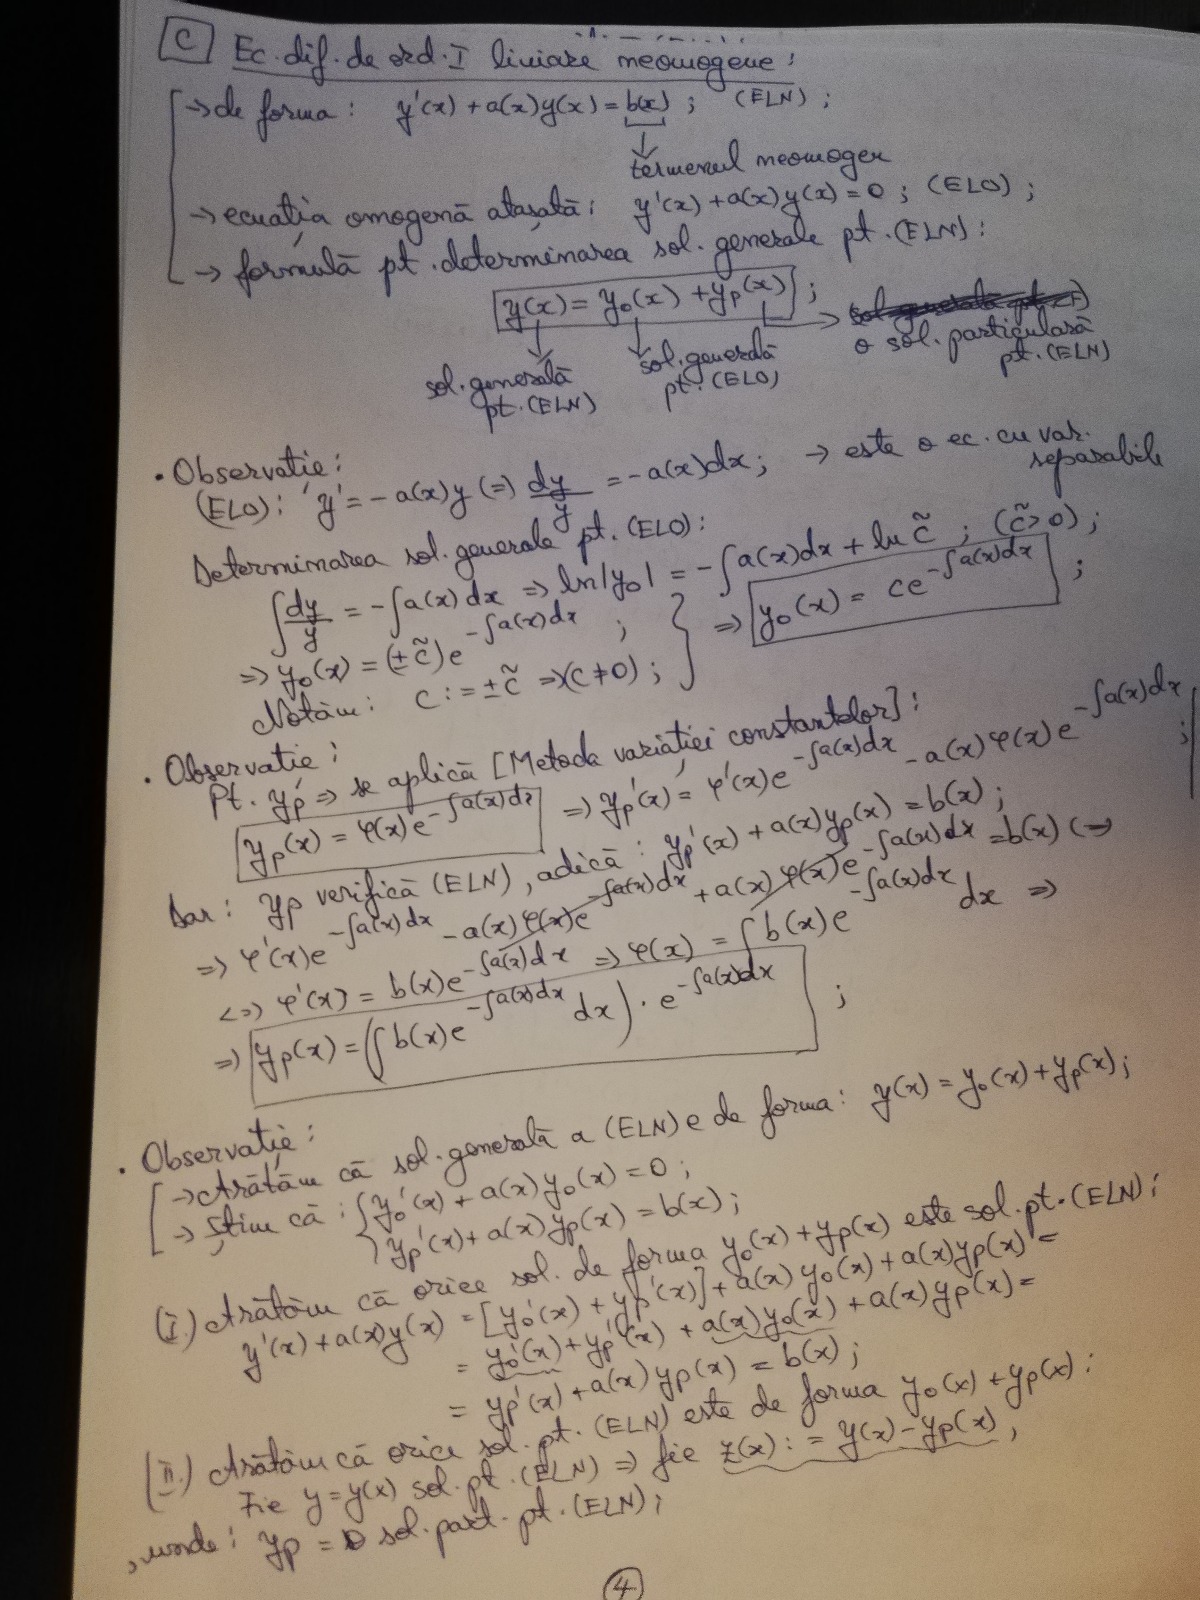 C Ec. dif. de ord. I liniare neomogene:
→ de forma: y'(x) + a(x)y(x) = b(x); (ELN);
termenul neomogen
→ ecuația omogenă atașată: y'(x) + a(x)y(x) = 0; (ELO);
→ formulă pt. determinarea sol. generale pt. (ELN):
y(x) = y₀(x) + yₚ(x);
sol. generală pt. (ELN)
sol. generală pt. (ELO)
o sol. particulară pt. (ELN)
• Observatie:
(ELO): y' = -a(x)y (=) dy/y = -a(x)dx; → este o ec. cu var. separabile
Determinarea sol. generale pt. (ELO):
∫dy/y = -∫a(x)dx => ln|y₀| = -∫a(x)dx + ln c̃; (c̃>0);
=> y₀(x) = (±c̃)e^{-∫a(x)dx};
Notăm: c := ±c̃ => (c≠0); } => y₀(x) = ce^{-∫a(x)dx};
• Observatie:
Pt. yₚ => se aplică [Metoda variației constantelor]:
yₚ(x) = φ(x)e^{-∫a(x)dx} => yₚ'(x) = φ'(x)e^{-∫a(x)dx} - a(x)φ(x)e^{-∫a(x)dx};
Dar: yₚ verifică (ELN), adică: yₚ'(x) + a(x)yₚ(x) = b(x);
=> φ'(x)e^{-∫a(x)dx} - a(x)φ(x)e^{-∫a(x)dx} + a(x)φ(x)e^{-∫a(x)dx} = b(x) (=>
<=> φ'(x) = b(x)e^{-∫a(x)dx} => φ(x) = ∫b(x)e^{-∫a(x)dx} dx =>
=> yₚ(x) = (∫b(x)e^{-∫a(x)dx} dx) · e^{-∫a(x)dx};
• Observație:
→ Arătăm că sol. generală a (ELN) e de forma: y(x) = y₀(x) + yₚ(x);
→ Știm că: { y₀'(x) + a(x)y₀(x) = 0;
yₚ'(x) + a(x)yₚ(x) = b(x);
(I.) Arătăm că orice sol. de forma y₀(x) + yₚ(x) este sol. pt. (ELN);
y'(x) + a(x)y(x) = [y₀'(x) + yₚ'(x)] + a(x)y₀(x) + a(x)yₚ(x) =
= y₀'(x) + yₚ'(x) + a(x)y₀(x) + a(x)yₚ(x) =
= yₚ'(x) + a(x)yₚ(x) = b(x);
(II.) Arătăm că orice sol. pt. (ELN) este de forma y₀(x) + yₚ(x):
Fie y = y(x) sol. pt. (ELN) => fie z(x) := y(x) - yₚ(x),
, unde: yₚ = o sol. part. pt. (ELN);
4